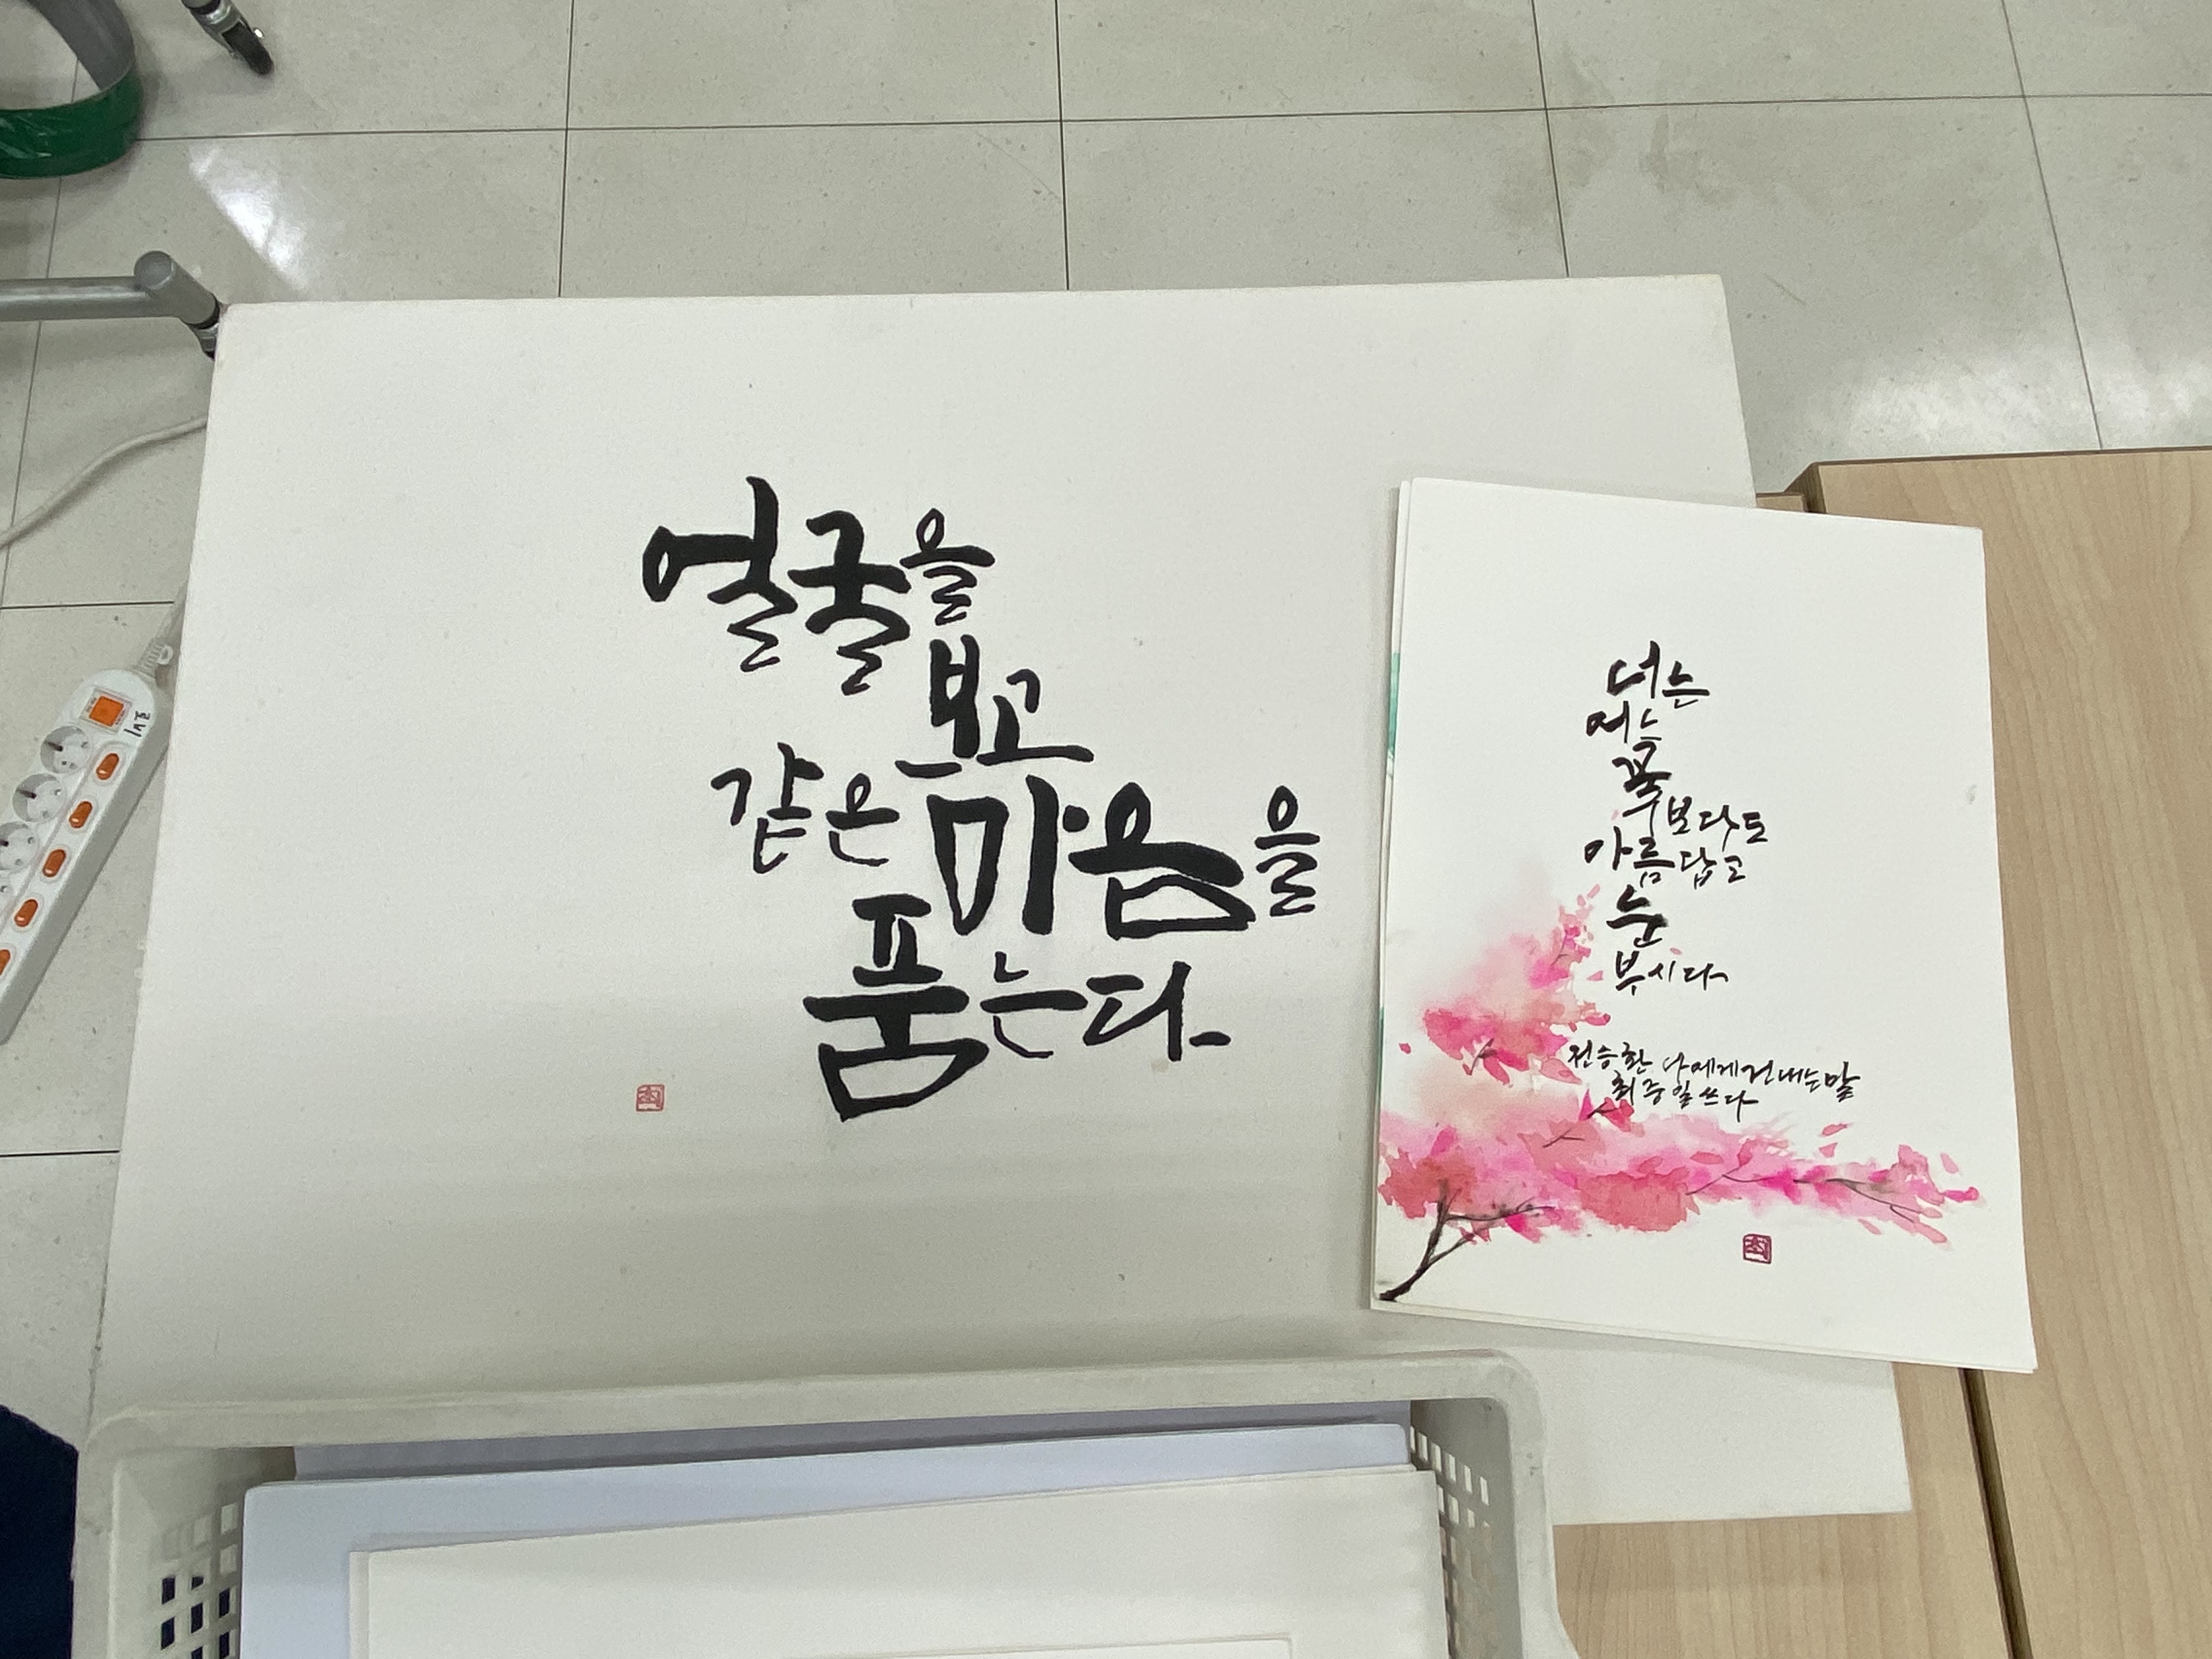 얼굴을
보고
같은 마음을
품는다.
너는
저는
꽃보다도
아름답고
눈
부시다
전승환 나에게 건내는 말
최중일 쓰다